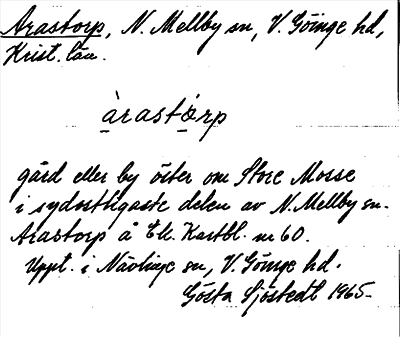 Arastorp, N. Mellby sn, V. Göinge hd,
Krist. län.
àrastórp
gård eller by öster om Store Mosse
i sydostligaste delen av N. Mellby sn.
Arastorp å Ek. Kartbl. nr 60.
Uppt. i Nävlinge sn, V. Göinge hd.
Gösta Sjöstedt 1965-